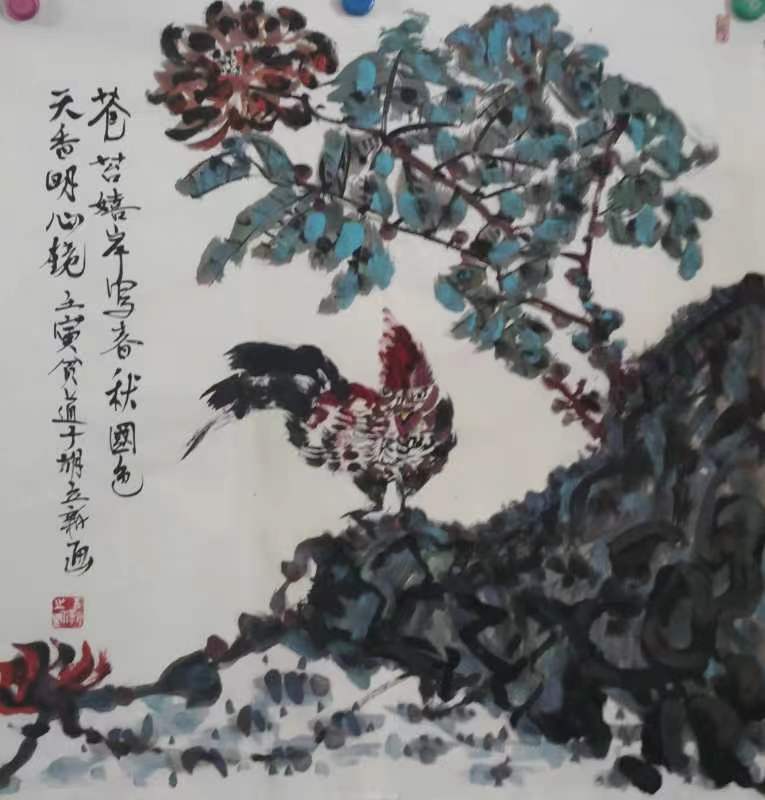 苍苔嬉岸写春秋國色
天香明心镜 壬寅贫道于胡立新画